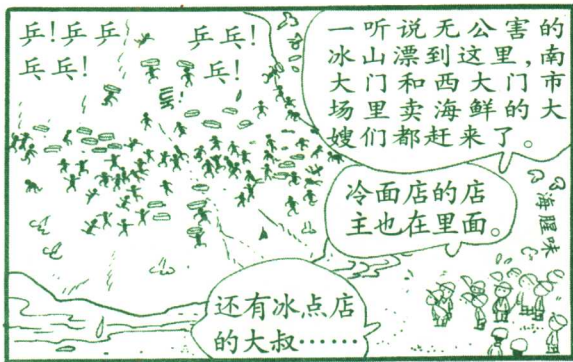 乒!乒乒
乓乓!
乒乓!
乓!
一听说无公害的
冰山漂到这里,南
大门和西大门市
场里卖海鲜的大
嫂们都赶来了。
冷面店的店
主也在里面。
海腥味
还有冰点店
的大叔……